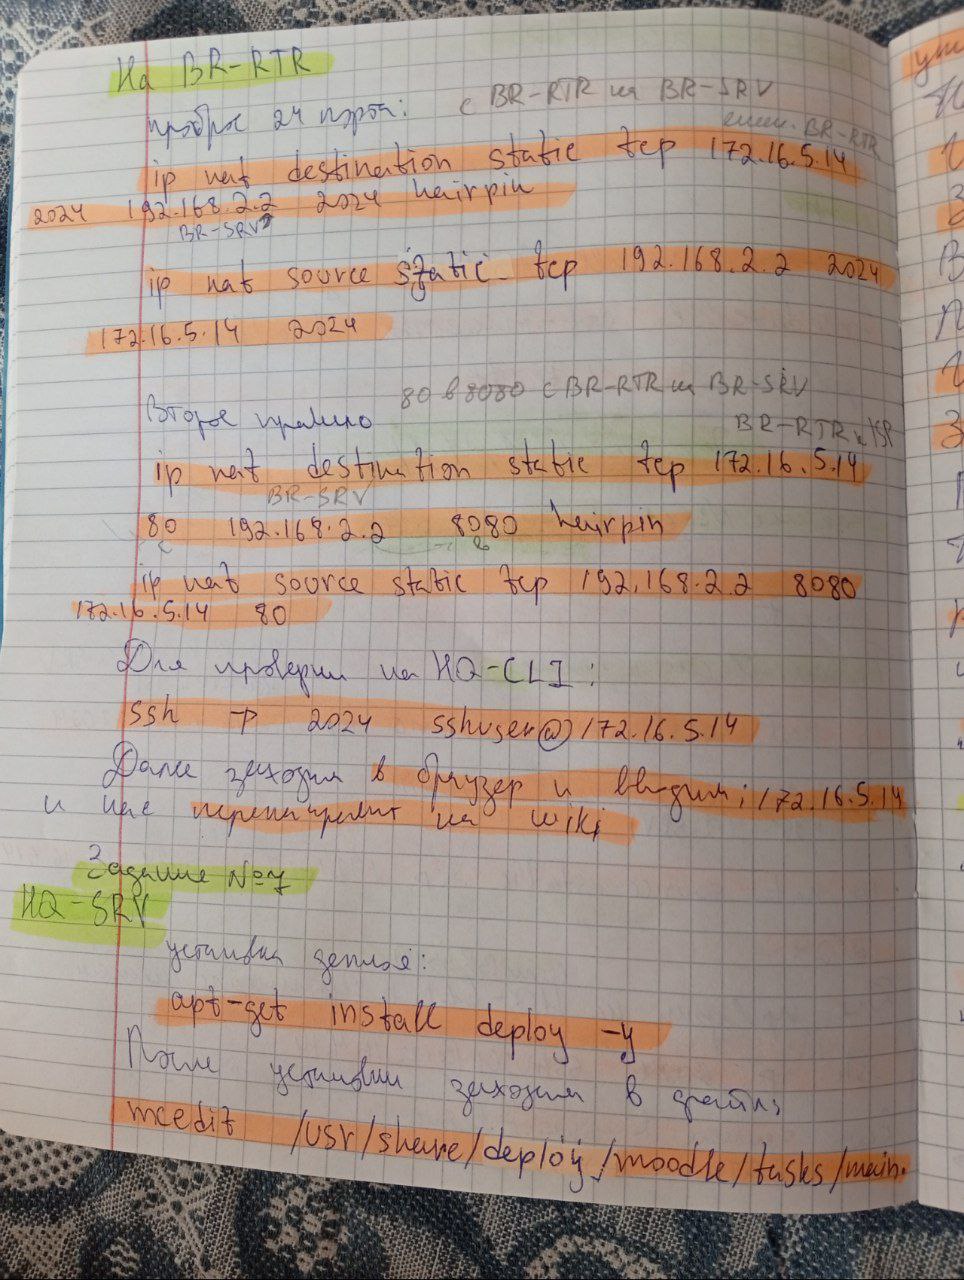 На BR-RTR
проброс 24 порта: с BR-RTR на BR-SRV
внеш. BR-RTR
ip nat destination static tcp 172.16.5.14
2024 192.168.2.2 2024 hairpin
BR-SRV
ip nat source static tcp 192.168.2.2 2024
172.16.5.14 2024
80 в 8080 с BR-RTR на BR-SRV
Второе правило
BR-RTR к ISP
ip nat destination static tcp 172.16.5.14
BR-SRV
80 192.168.2.2 8080 hairpin
ip nat source static tcp 192.168.2.2 8080
172.16.5.14 80
Для проверки на HQ-CLI:
ssh -p 2024 sshuser@172.16.5.14
Далее заходим в браузер и вводим: 172.16.5.14
и нас перенаправит на wiki
Задание №7
HQ-SRV
установка деплоя:
apt-get install deploy -y
После установки заходим в файл:
mcedit /usr/share/deploy/moodle/tasks/main.